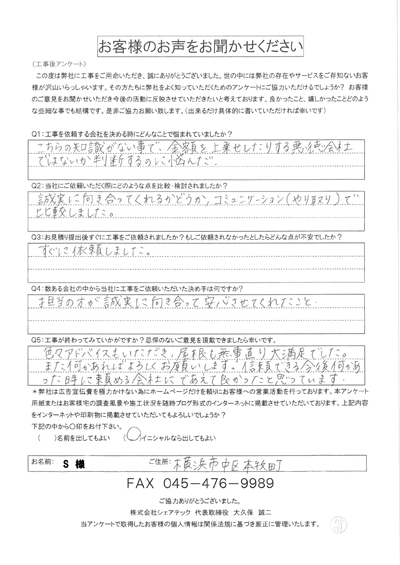 お客様のお声をお聞かせください
(工事後アンケート)
この度は弊社に工事をご用命いただき、誠にありがとうございました。世の中には弊社の存在やサービスをご存知ないお客
様が沢山いらっしゃいます。その方たちに弊社をよく知っていただくためのアンケートにご協力いただけるでしょうか? お客様
のご意見をお聞かせいただき今後の活動に反映させていただきたいと考えております。良かったこと、嬉しかったことどのよう
な些細な事でも結構です。是非ご協力お願い致します。(出来るだけ具体的に書いていただければ幸いです)
Q1:工事を依頼する会社を決める時にどんなことで悩まれていましたか?
こちらの知識がない事で、金額を上乗せしたりする悪徳会社
ではないか判断するのに悩んだ。
Q2:当社にご依頼いただく際にどのような点を比較・検討されましたか?
誠実に向き合ってくれるかどうか、コミュニケーション(やりとり)で
比較しました。
Q3:お見積り提出後すぐに工事をご依頼されましたか?もしご依頼されなかったとしたらどんな点が不安でしたか?
すぐに依頼しました。
Q4:数ある会社の中から当社に工事をご依頼いただいた決め手は何ですか?
担当の方が誠実に向き合って安心させてくれたこと。
Q5:工事が終わってみていかがですか?忌憚のないご意見を頂戴できましたら幸いです。
色々アドバイスもいただき、屋根も無事直り大満足でした。
また何かあればよろしくお願いします。信頼できる今後何かあ
った時に頼める会社にであえて良かったと思っています。
*弊社は広告宣伝費を極力かけない為にホームページだけを頼りにお客様への営業活動を行っております。本アンケート
用紙またはお客様宅の調査風景や施工状況を随時ブログ形式のインターネットに掲載させていただいております。上記内容
をインターネットや印刷物に掲載させていただいてもよろしいでしょうか?
下記の中から〇印をお付け下さい。
( )名前を出してもよい (〇)イニシャルなら出してもよい
お名前: S 様 ご住所: 横浜市中区本牧町
FAX 045-476-9989
ご協力ありがとうございました。
株式会社シェアテック 代表取締役 大久保 誠二
当アンケートで取得したお客様の個人情報は関係法規に基づき厳正に管理いたします。